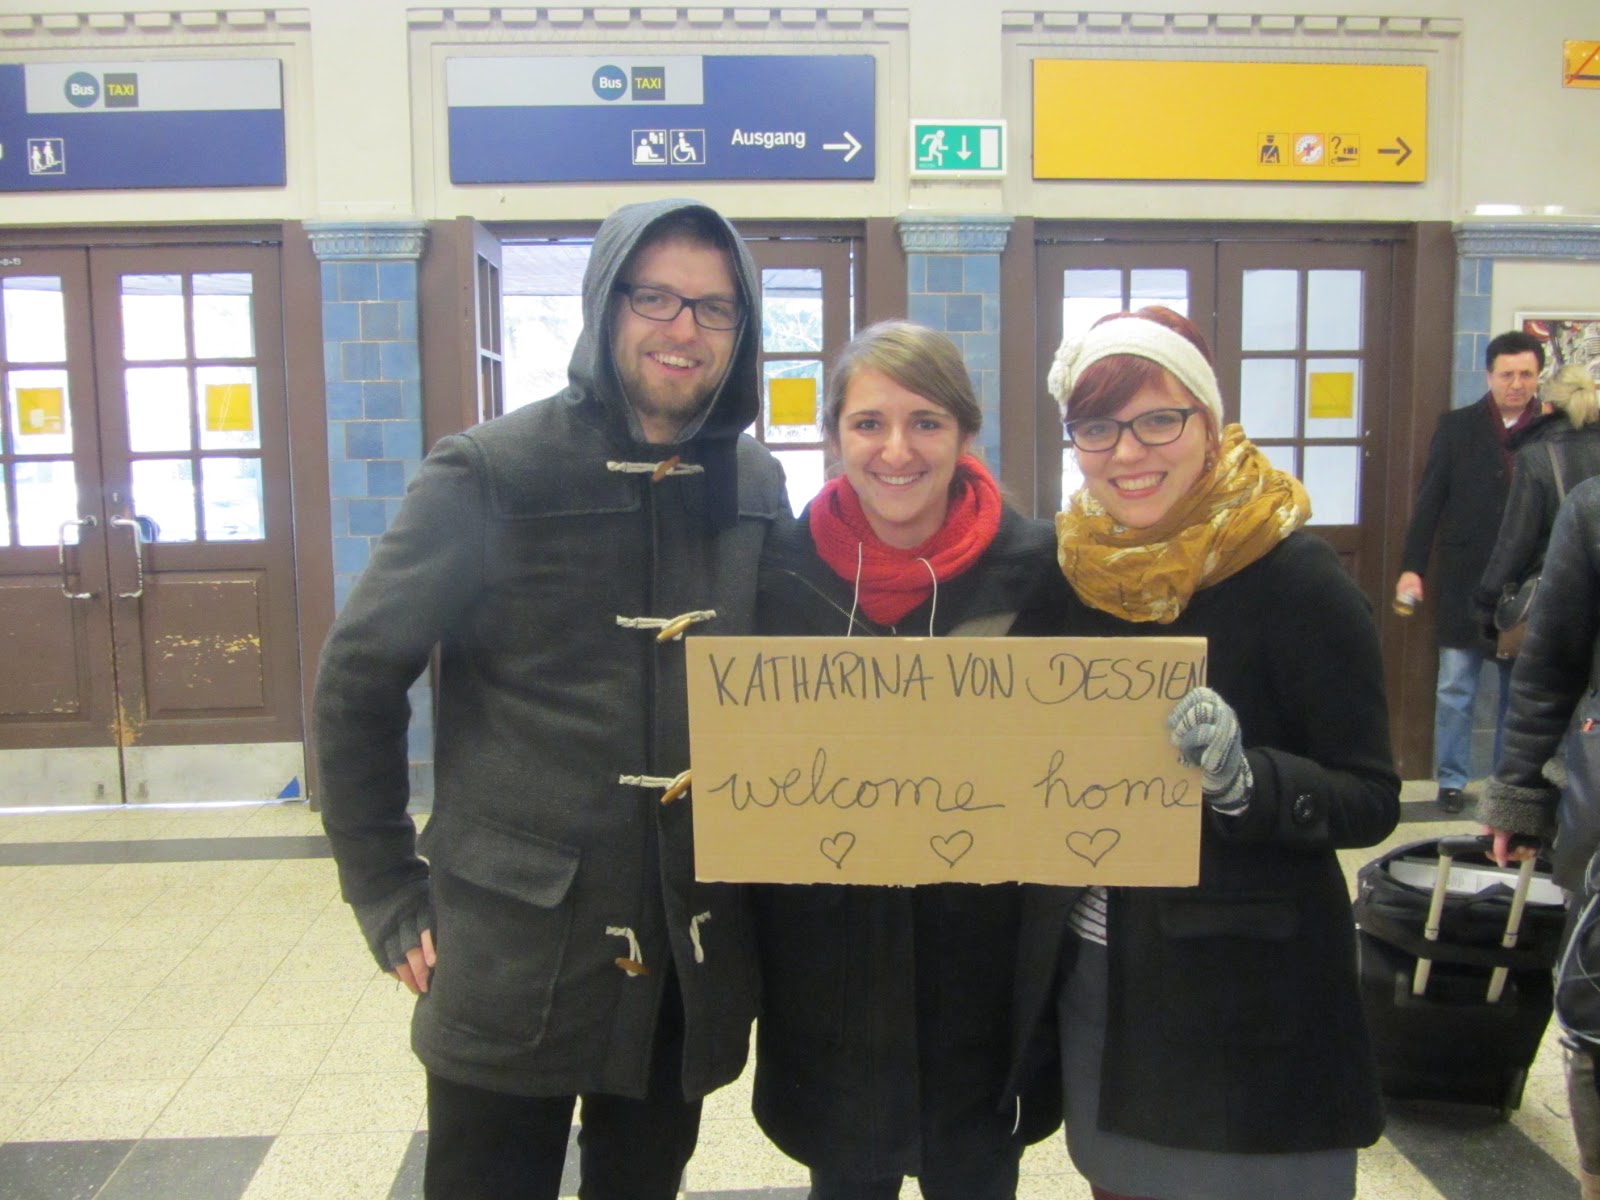 Bus TAXI
Bus TAXI
Ausgang
KATHARINA VON DESSIEN
welcome home